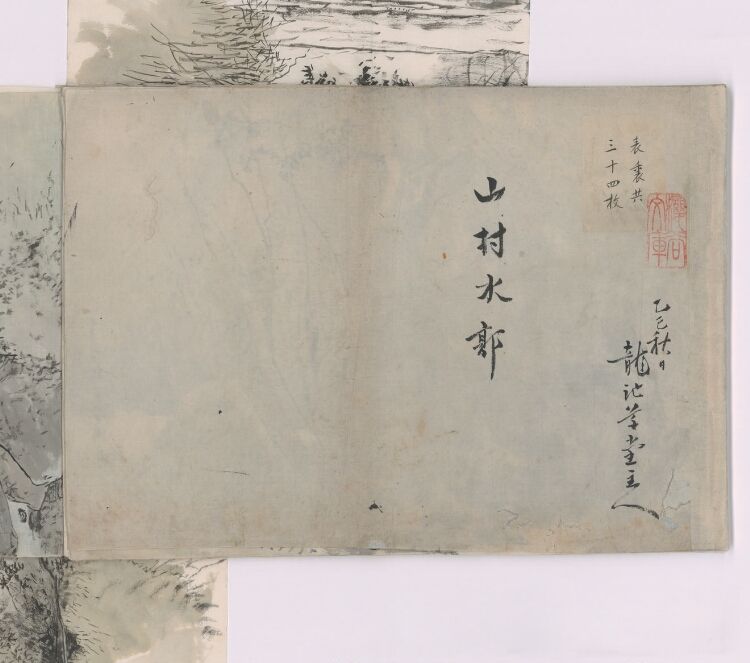 表裏共
三十四枚
乙巳秋日
龍池草堂主人
山村水郭